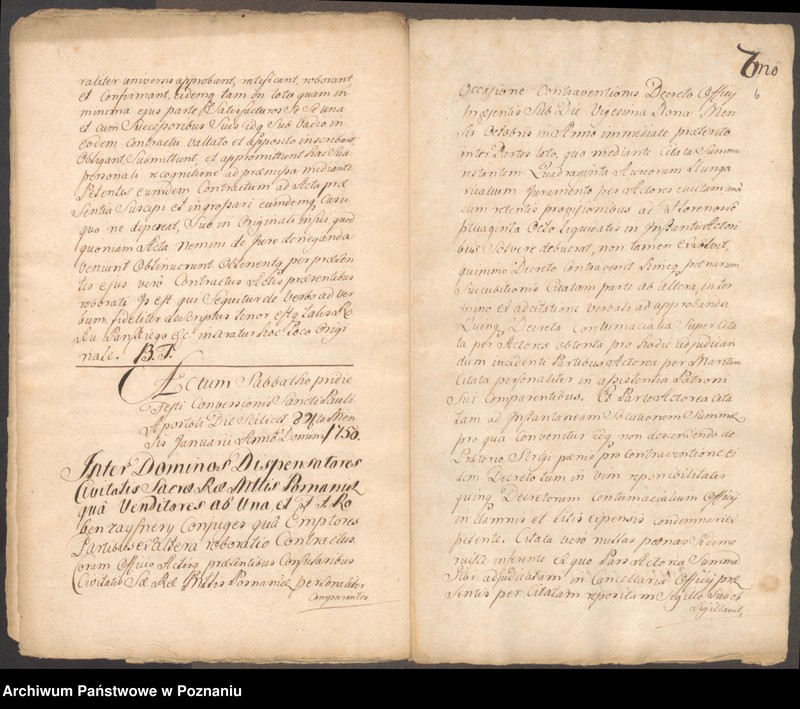 raliter universis approbant, ratificant, roborant
et Confirmant, eidemq tam in toto quam in
minima ejus parte Satisfacturos Se Se una
et cum Successoribus Suis idq Sub Vadio in
eodem contractu vallato et apposito inscribunt,
Obligant, Submittunt, et appromittunt hac Sua
personali recognitione ad præmissa mediante
Petentes eumdem Contractum ad Acta præ
sentia Suscipi et ingrossari eumdemq Casu
quo ne depereat, Suo in Originali in jus quod
quoniam Acta Nemini de Jure deneganda
veniunt Obtinuerunt Obtenentq per præsen
tes ejus vero Contractus Actis præsentibus
roborati Is est qui Sequitur de Verbo ad ver
bum fideliter descriptus tenor estq talis
inseratur hoc Loco Origi
nale. B.T.
Actum Sabbatho pridie
Festi Conversionis Sancti Pauli
Apostoli Die Scilicet 24ta Men
sis Januarii Anno Domini 1750.
Inter Dominos Dispensatores
Civitatis Sacræ Ræ Mttis Posnaniæ
quâ Venditores ab Una, et
Conjuges quâ Emptores
Partibus ex altera roboratio Contractus.
Coram Officio Actisq præsentibus Consularibus
Civitatis Sæ Ræ Mttis Posnaniæ personaliter
Comparentes
6
Occasione Contraventionis Decreto Officij
præsentis Sub Die Vigesima Nona Men
sis Octobris in Anno immediate præterito
inter Partes lato, quo mediante Citata Summa
restantem Quadraginta Aureorum Hunga
ricalium Juramento per Actores
cum retentis provisionibus ad Florenos
Octo liquidatis in instanti Actori
bus Solvere debuerat, non tamen exsolvit,
quinimo Decreto Contravenit hincq pænarum
Succubitionis Citatam parte ab altera, in ter
mino et ad Citatione verbali ad approbanda
Decreta Contumacialia Super Cita
ta per Actores obtenta pro hodie adjudican
dum incidenti Partibus Actorea per Maritum
Citata personaliter in assistentia Patroni
Sui Comparentibus. Ex Parte Actorea Cita
tam ad Instantaneam Solutionem Summæ
pro qua Convenitur idq non descendendo de
Prætorio Strigi pænis pro Contraventione ei
dem Decreto tum in vim reponibilitatis
Decretorum Contumacialium Officij
in damnis et litis expensis Condemnari
petente. Citata vero nullas pænas Se deme
ruisse inferente Ex quo Pars Actorea Summa
Sibi adjudicatam in Cancellaria Officij præ
sentis per Citatam repositam Sigillo Suo
Sigillavit,
Archiwum Państwowe w Poznaniu